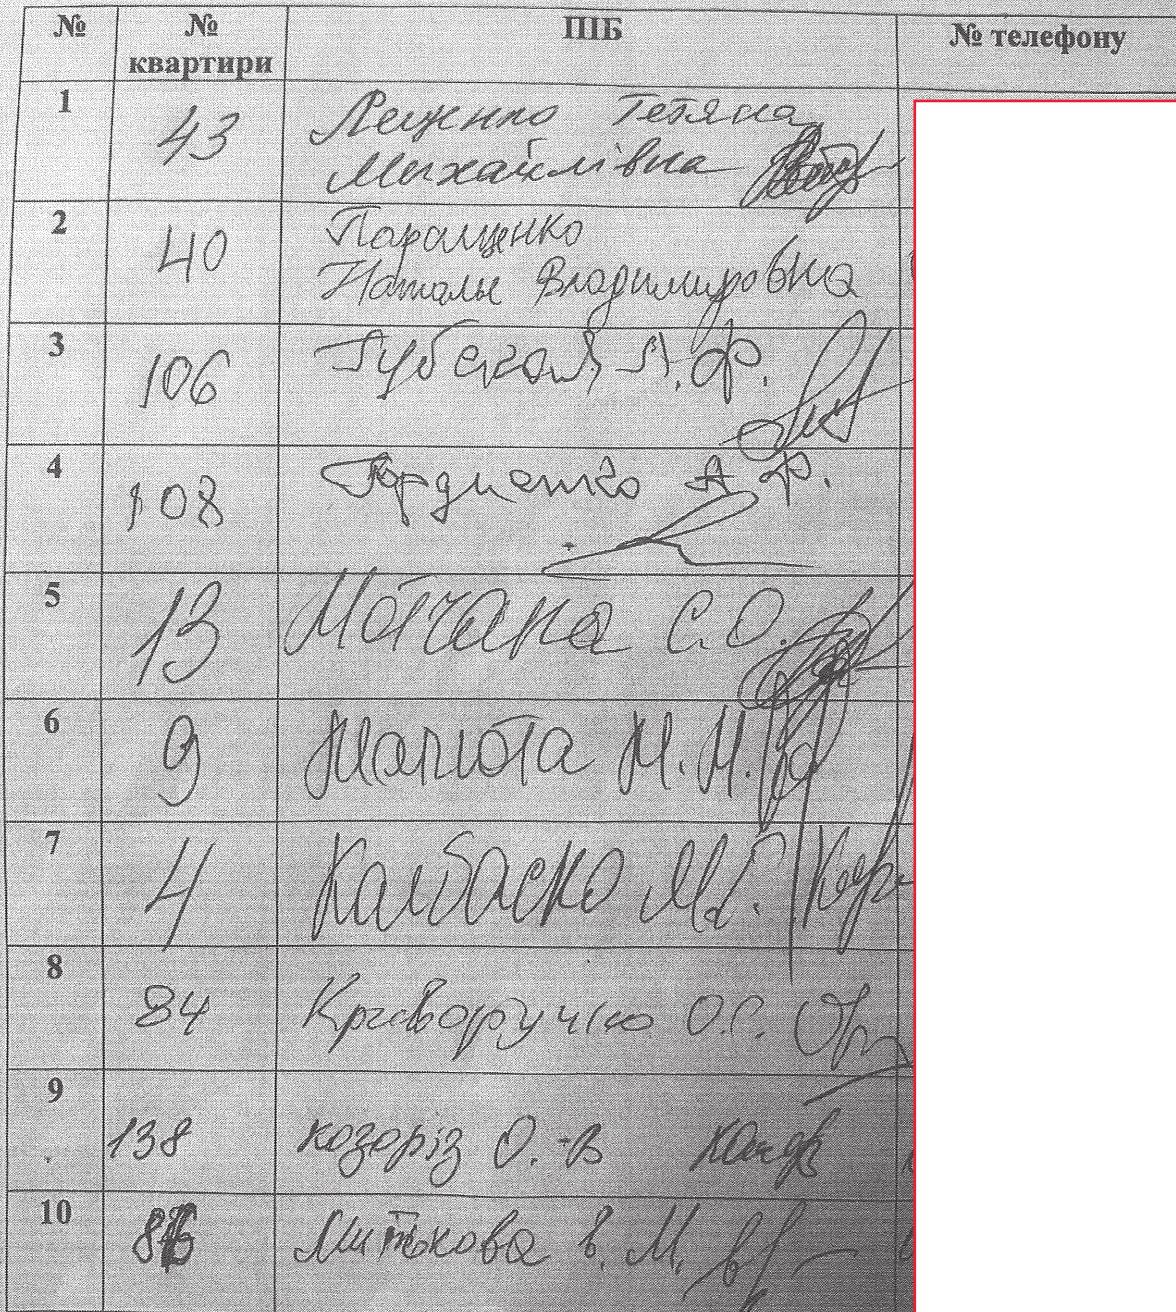 № № квартири ПІБ № телефону
1 43 Лещенко Тетяна
Михайлівна
2 40 Паращенко
Наталья Владимировна
3 106 Губская А.Ф.
4 108 Гордиенко А.Ф.
5 13 С.О.
6 9 Малюта М.М.
7 4 Калбаско М.Г.
8 84 Криворучко О.С.
9 138 козоріз О.В
10 Митькова В.М.